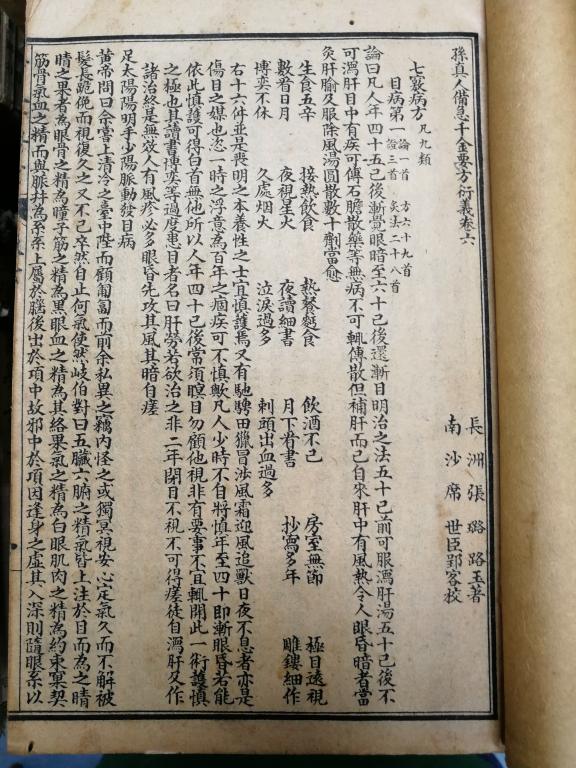 孫真人備急千金要方衍義卷六
長洲張璐路玉著
南沙席世臣郢客校
七竅病方凡九類
目病第一論一首 證三首 方六十九首 灸法二十八首
論曰凡人年四十五已後漸覺眼暗至六十已後還漸目明治之法五十已前可服瀉肝湯五十已後不
可瀉肝目中有疾可傅石膽散藥等無病不可輒傅散但補肝而已自來肝中有風熱令人眼昏暗者當
灸肝腧久服除風湯圓散數十劑當愈
生食五辛 接熱飲食 熱餐麪食 飲酒不已 房室無節 極目遠視
數看日月 夜視星火 夜讀細書 月下看書 抄寫多年 雕鏤細作
博奕不休 久處烟火 泣淚過多 刺頭出血過多
右十六件並是喪明之本養性之士宜慎護焉又有馳騁田獵冒涉風霜迎風追獸日夜不息者亦是
傷目之媒也恣一時之浮意為百年之痼疾可不慎歟凡人少時不自將慎年至四十即漸眼昏若能
依此慎護可得白首無他所以人年四十已後常須瞑目勿顧他視非有要事不宜輒開此一術護慎
之極也其讀書博奕等過度患目者名曰肝勞若欲治之非二年閉目不視不可得瘥徒自瀉肝又作
諸治終是無效人有風疹必多眼昏先攻其風其暗自瘥
足太陽陽明手少陽脈動發目病
黃帝問曰余嘗上清泠之臺中陛而顧匍匐而前余私異之竊內怪之或獨冥視安心定氣久而不解被
髮長跪俛而視復久之又不已卒然自止何氣使然岐伯對曰五臟六腑之精氣皆上注於目而為之睛
睛之果者為眼骨之精為瞳子筋之精為黑眼血之精為其絡果氣之精為白眼肌肉之精為約束裹契
筋骨氣血之精而與脈并為系系上屬於腦後出於項中故邪中於項因逢身之虛其入深則隨眼系以